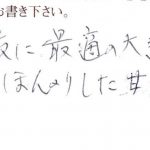 お書き下さい。
度に最適の大き
ほんのりした甘